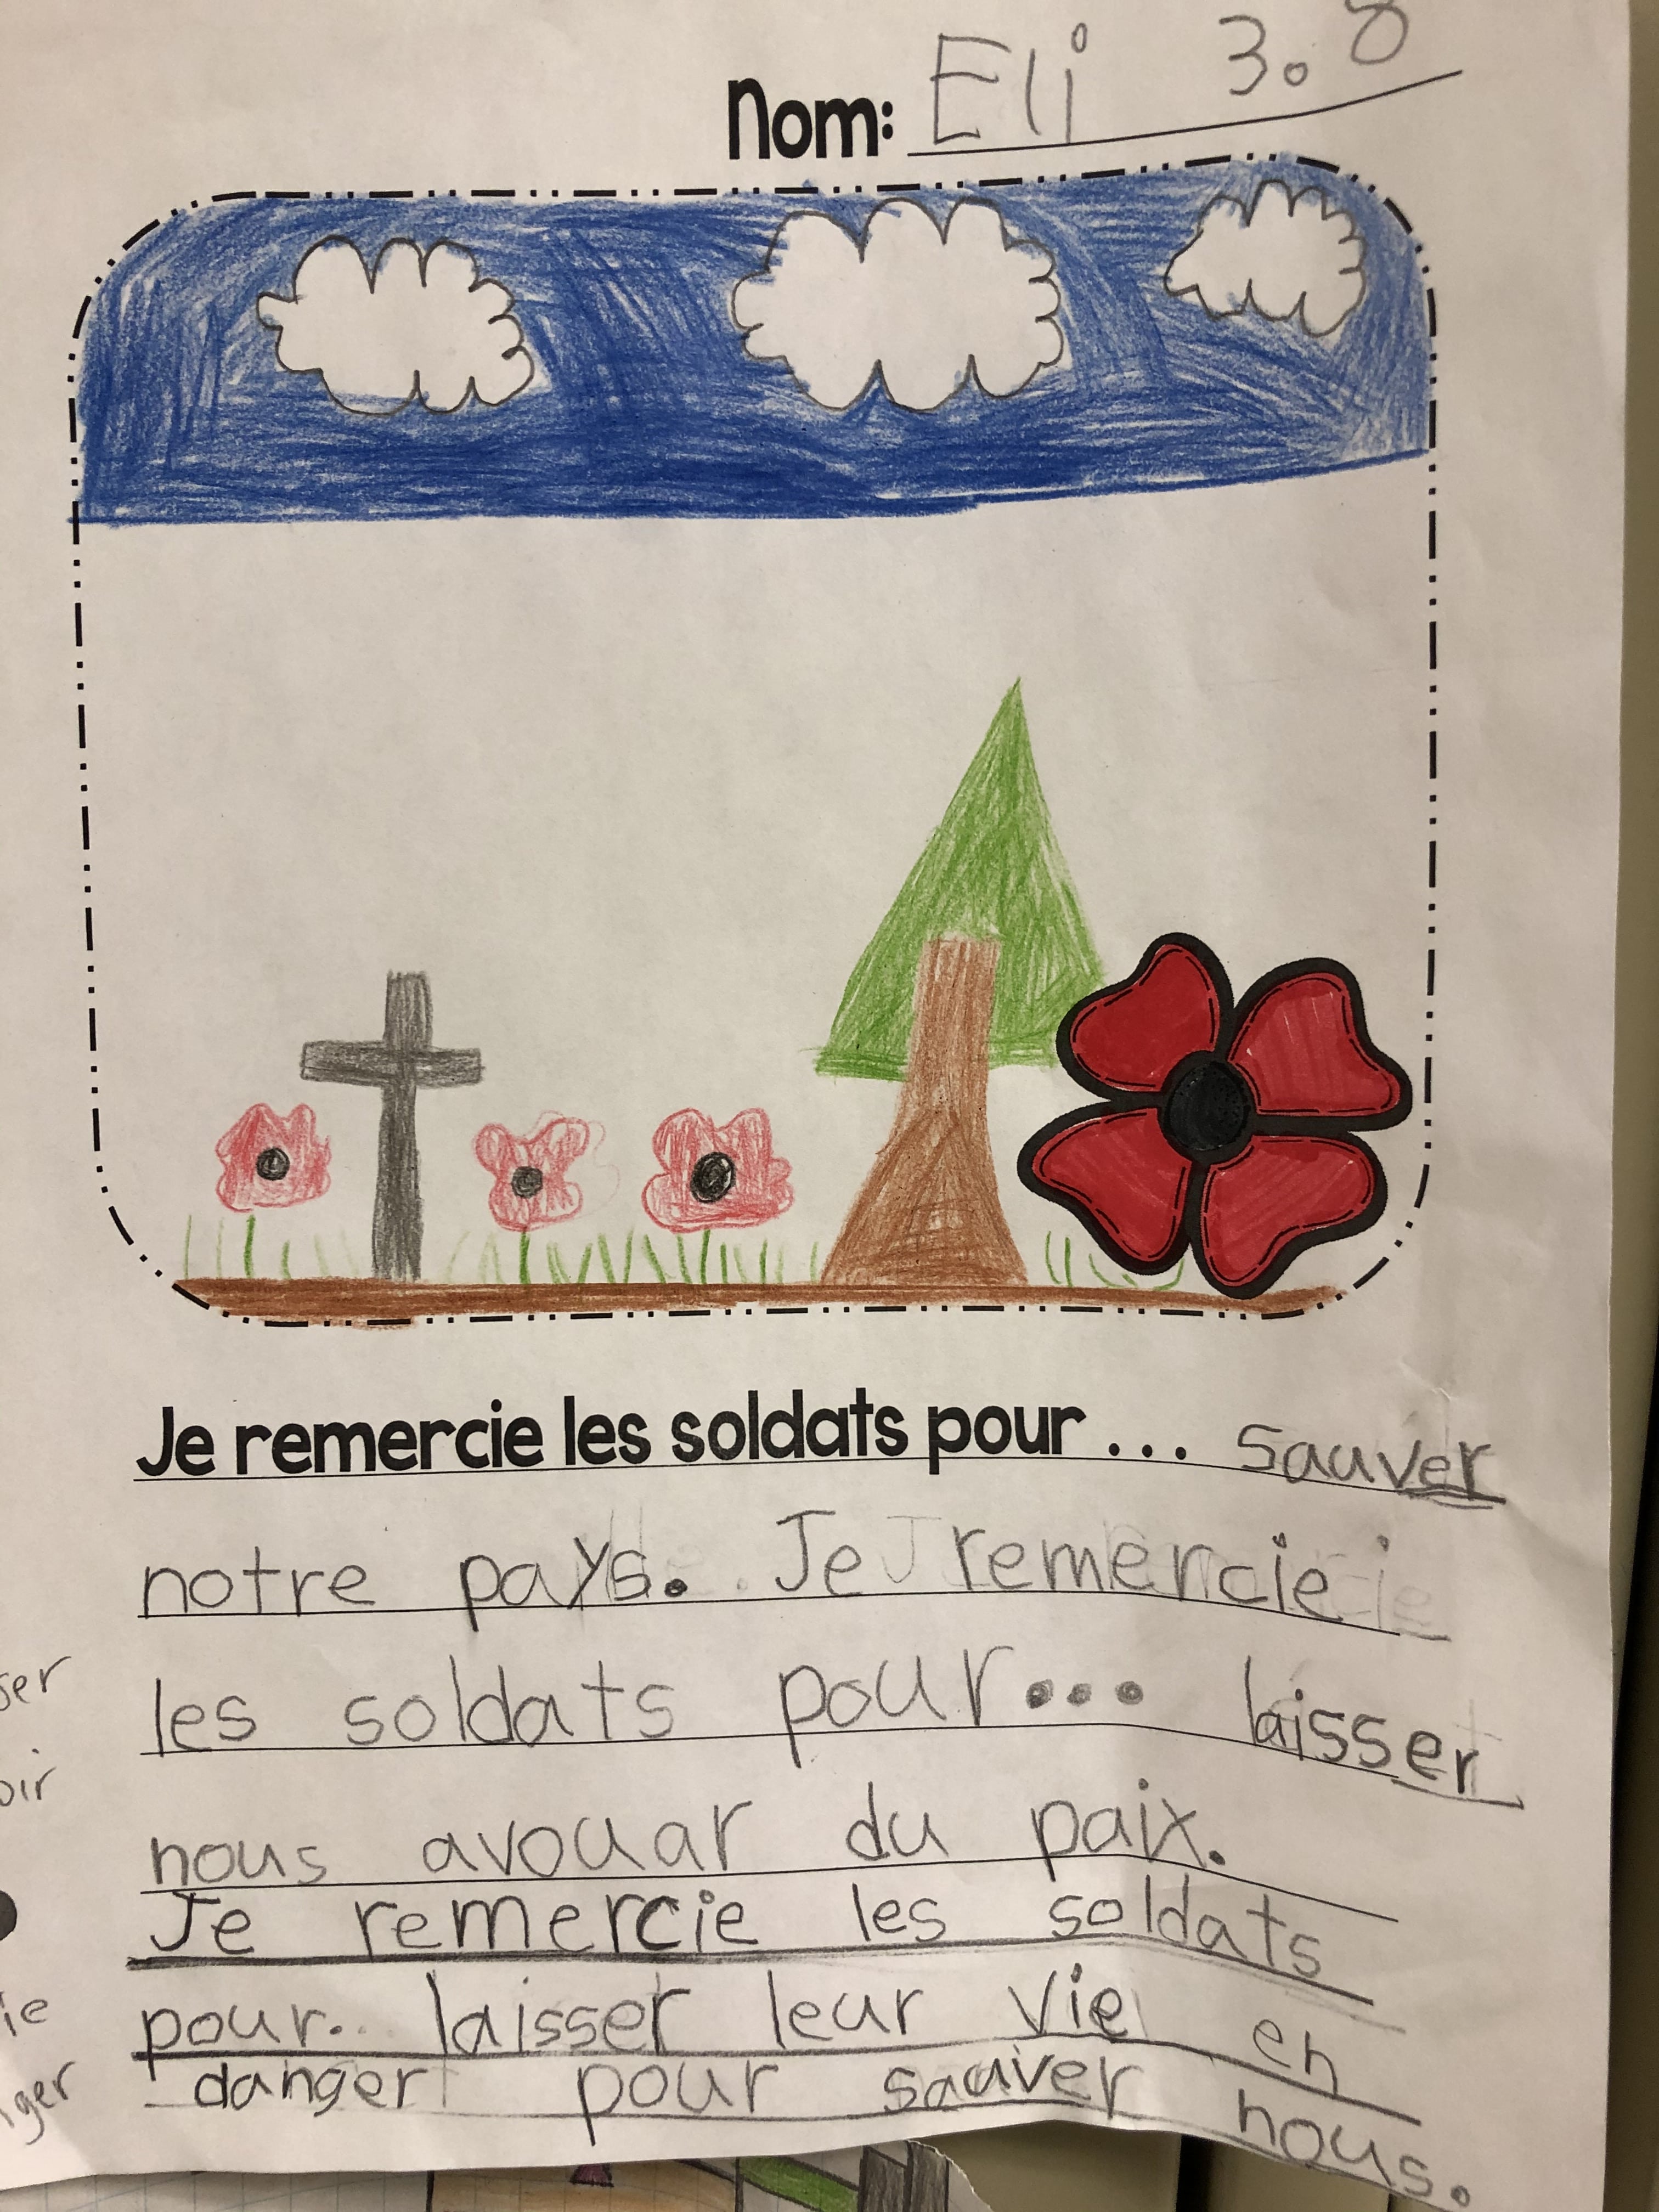 Nom: Eli 3.8
Je remercie les soldats pour... sauver
notre pays. Je remercie
les soldats pour... laisser
nous avouar du paix.
Je remercie les soldats
pour... laisser leur vie en
danger pour sauver nous.
ser
oir
ie
ger